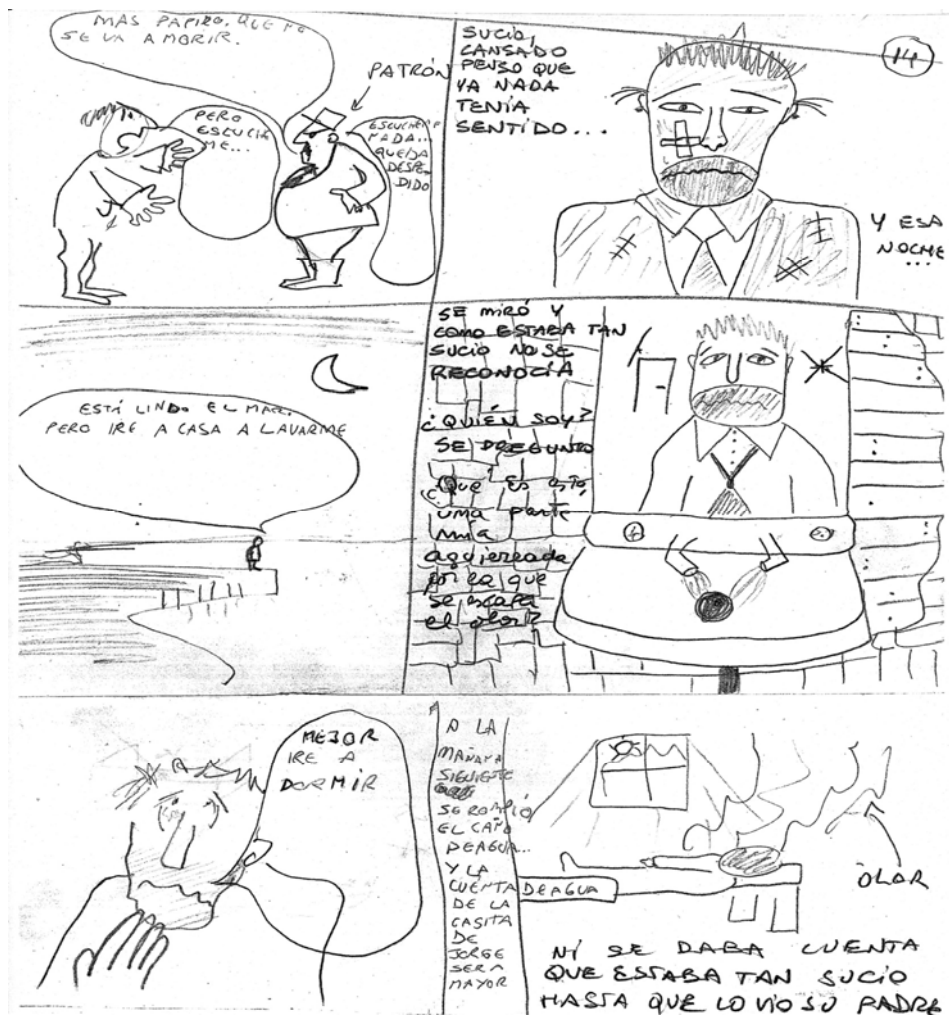 MAS PAPIRO, QUE NO
SE VA A MORIR.
PERO
ESCUCHE
ME...
PATRÓN
ESCUCHEME
NADA...
QUEDA
DESPE-
DIDO
SUCIO,
CANSADO
PENSO QUE
YA NADA
TENÍA
SENTIDO...
14
Y ESA
NOCHE
...
ESTÁ LINDO EL MAR.
PERO IRE A CASA A LAVARME
SE MIRÓ Y
COMO ESTABA TAN
SUCIO NO SE
RECONOCÍA
¿QUIÉN SOY?
SE PREGUNTO
¿Que es esto,
una parte
mía
agujereada
por la que
se escapa
el olor?
MEJOR
IRE A
DORMIR
A LA
MAÑANA
SIGUIENTE
SE ROMPIÓ
EL CAÑO
DE AGUA...
Y LA
CUENTA DE AGUA
DE LA
CASITA
DE
JORGE
SERA
MAYOR
OLOR
NI SE DABA CUENTA
QUE ESTABA TAN SUCIO
HASTA QUE LO VIO SU PADRE